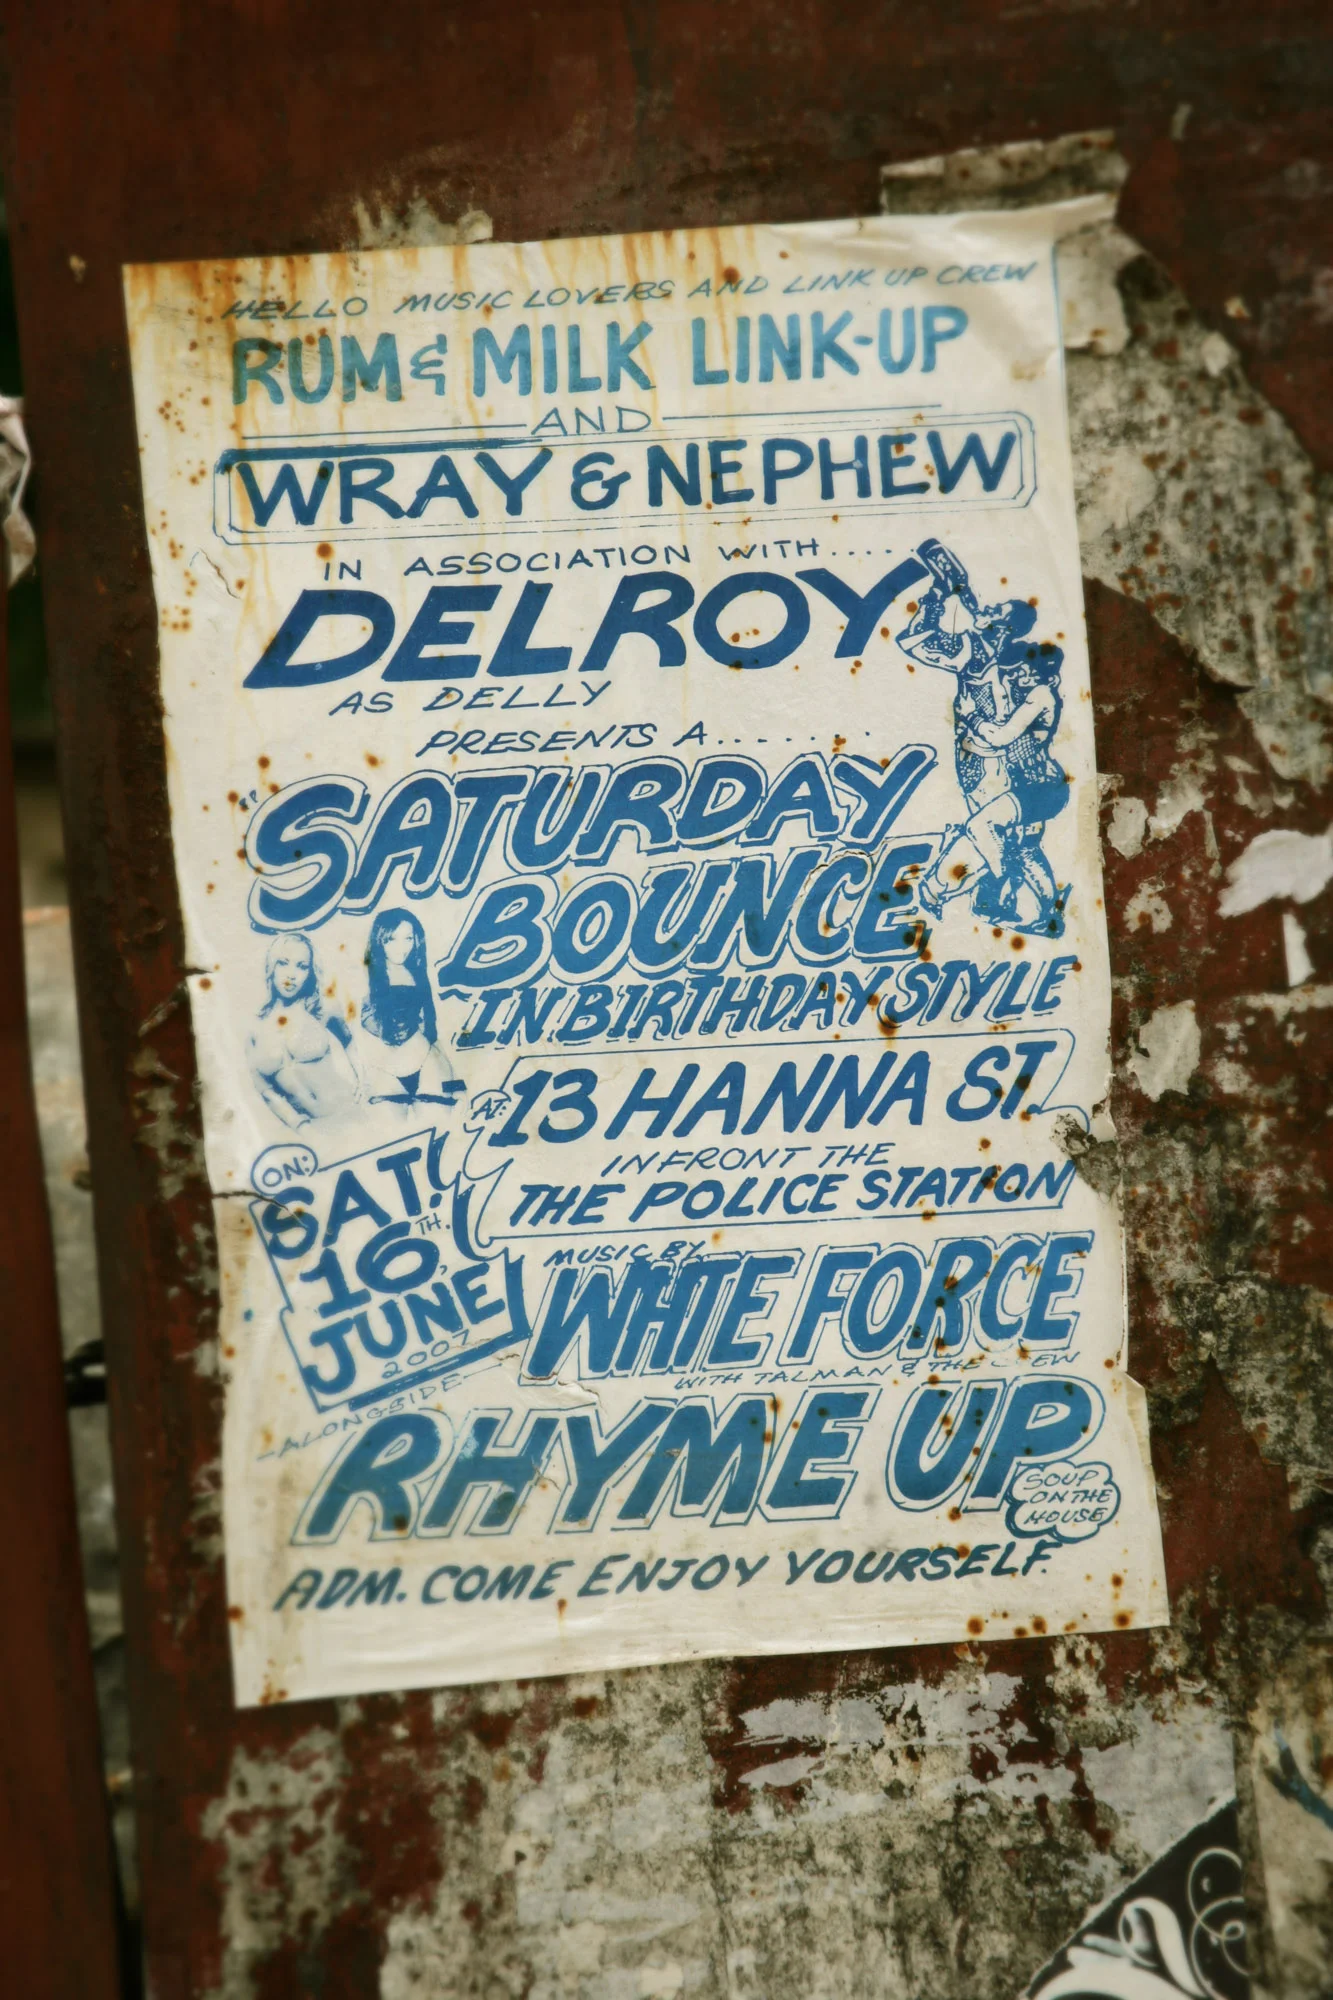 HELLO MUSIC LOVERS AND LINK UP CREW
RUM & MILK LINK-UP
AND
WRAY & NEPHEW
IN ASSOCIATION WITH.....
DELROY
AS DELLY
PRESENTS A........
SATURDAY
BOUNCE
IN BIRTHDAY STYLE
AT:
13 HANNA ST.
INFRONT THE
THE POLICE STATION
ON:
SAT!
16TH.
JUNE
2007
MUSIC BY
WHITE FORCE
WITH TALMAN & THE
-ALONGSIDE-
RHYME UP
SOUP
ON THE
HOUSE
ADM. COME ENJOY YOURSELF.